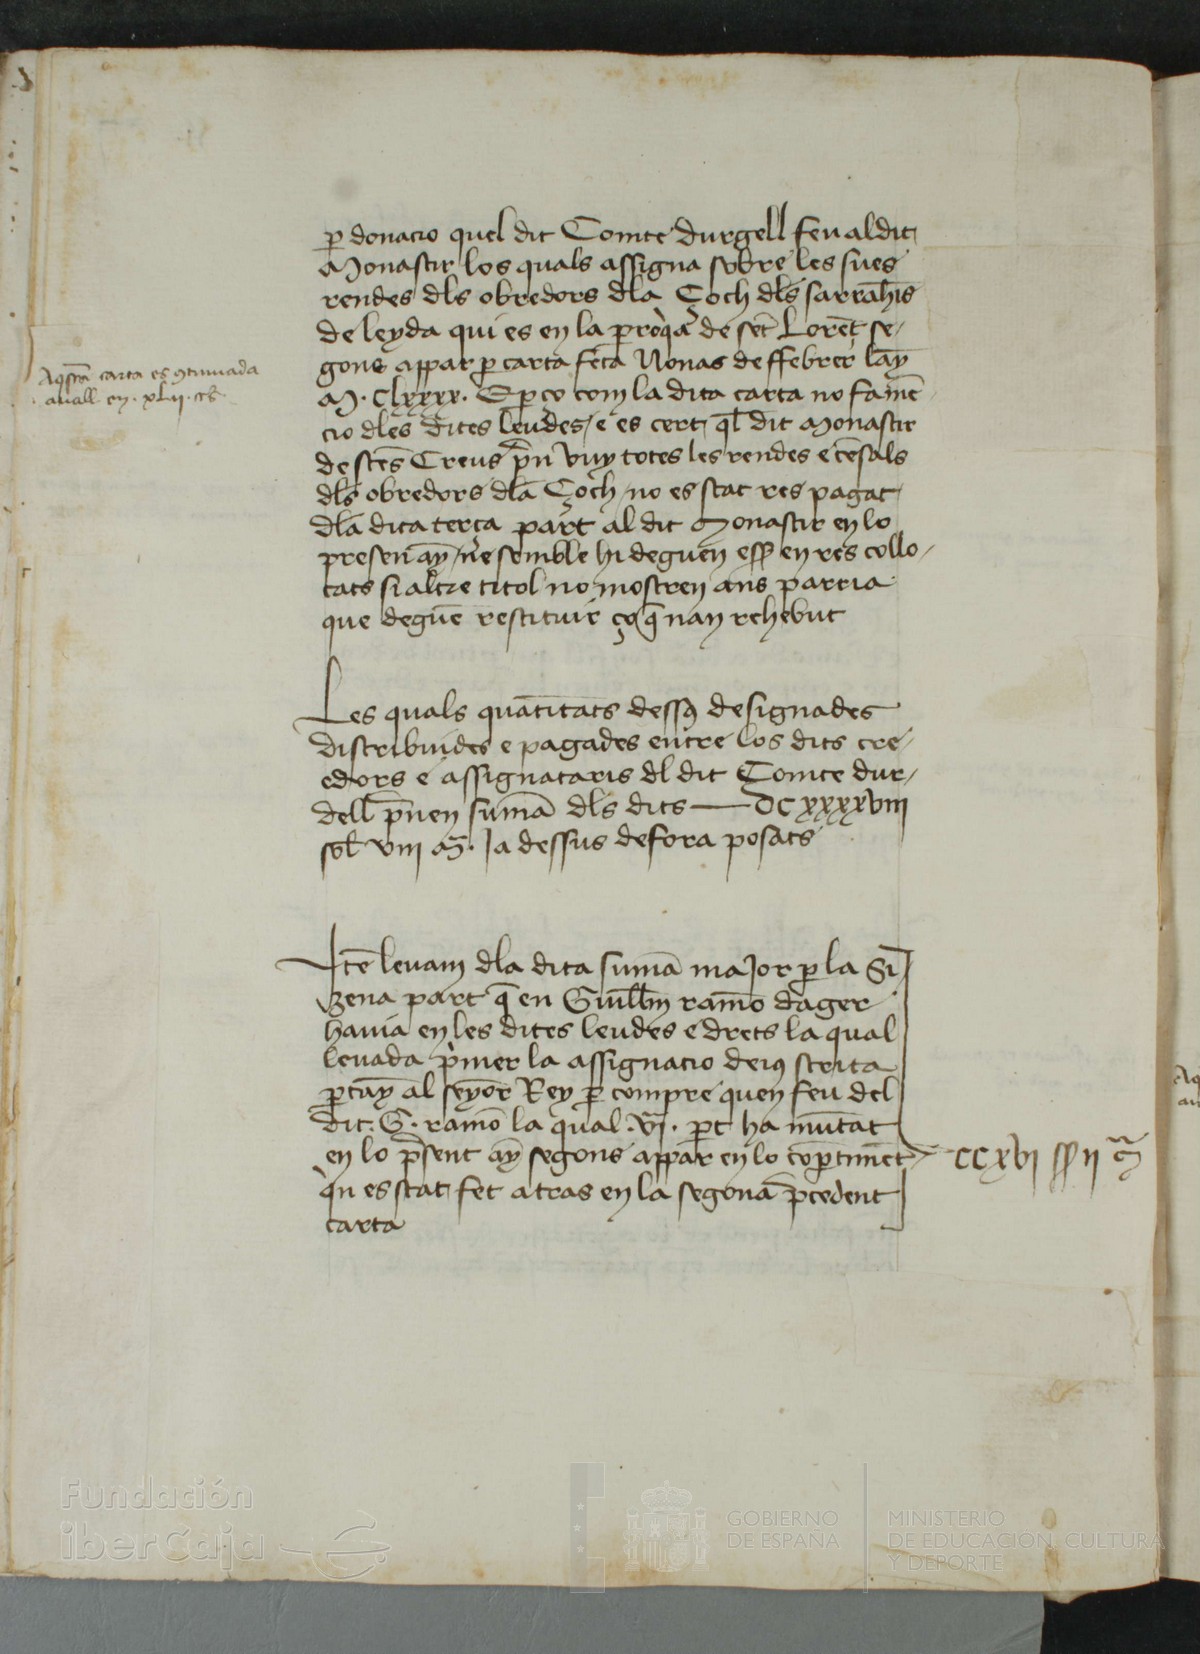 p donacio quel dit Comte durgell feu al dit
Monastir los quals assigna sobre les sues
rendes dls obredors dla Çoch dls sarrahis
de leyda qui es en la perroq̃a de sct̃ Lorẽt se/
gons appar p carta fcã Nonas de ffebrer lãy
M · Clxxxx · E p ço com la dita carta no fa mẽ
cio dles dites leudes / e es cert q̃l dit Monastir
de sctẽs Creus p̃n vuy totes les rendes e cẽsals
dls obredors dla Çoch / no es stat res pagat
dla dita terça part al dit Monastir en lo
presen ay / ne semble hi deguen ess̃ en res collo/
cats si altre titol no mostren ans parria
que deguẽ restituir ço q̃ nan rehebut
Les quals quãtitats dess9 designades
distribuides e pagades entre los dits cre/
edors e assignataris dl dit Comte dur/
dell p̃nen sumã dls dits — DCxxxxviii
sol̃ viii m̃. Ja dessus defora posats
Aq̃sta carta es 9tinuada
auall en · xLii · c̃s
Itẽ leuam dla dita sumã major p la Si
zena part q̃ en Guill̃m ramõ dager
hauia en les dites leudes e drets la qual
leuada p̃mer la assignacio deius scrita
ptãy al seyor Rey p compre quen feu del
dit · G · ramõ la qual · vi · pt ha mũtat
en lo p̃sent ay segons appar en lo cop̃timẽt
q̃n es stat fet atras en la segona p̃cedent
carta
CCxvi ss ii m̃
Fundación
iberCaja
GOBIERNO
DE ESPAÑA
MINISTERIO
DE EDUCACIÓN, CULTURA
Y DEPORTE